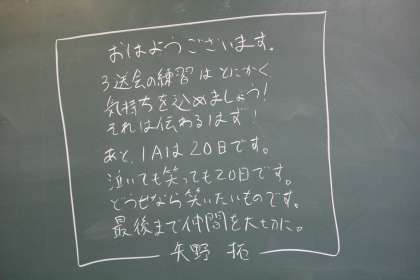 おはようございます。
3送会の練習はとにかく
気持ちを込めましょう!
それは伝わるはず!
あと、1A1は20日です。
泣いても笑っても20日です。
どうせなら笑いたいものです。
最後まで仲間を大切に。
矢野 拓